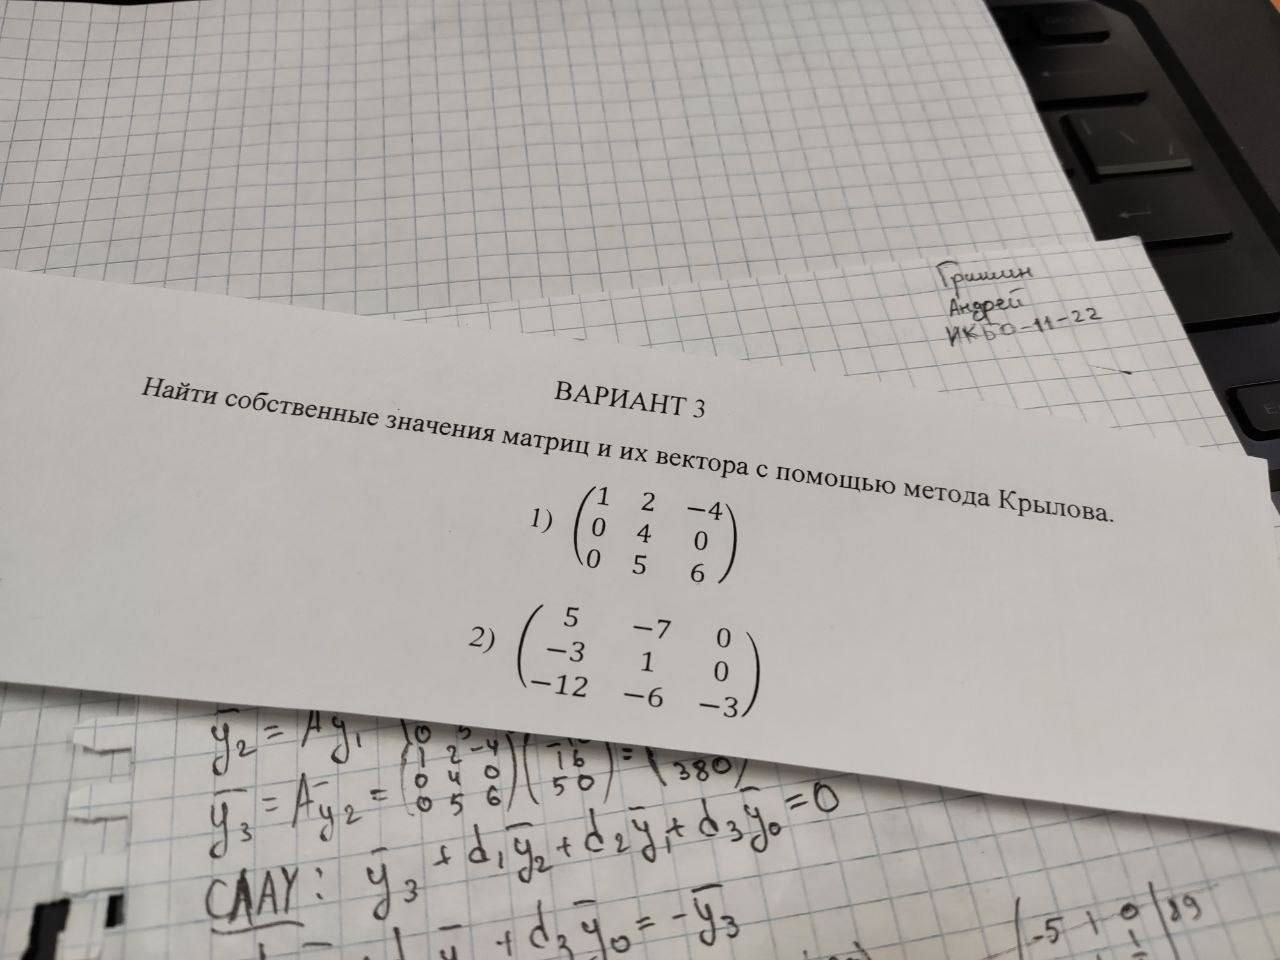 Гришин
Андрей
ИКБО-11-22
ВАРИАНТ 3
Найти собственные значения матриц и их вектора с помощью метода Крылова.
1) (1 2 −4
0 4 0
0 5 6)
2) (5 −7 0
−3 1 0
−12 −6 −3)
y̅₂ = Ay̅₁
y̅₃ = Ay̅₂ = (1 2 -4
0 4 0
0 5 6) (16
50) = (380)
СЛАУ: y̅₃ + d₁y̅₂ + d₂y̅₁ + d₃y̅₀ = 0
+ d₃y̅₀ = -y̅₃
-5 1 0 | 89